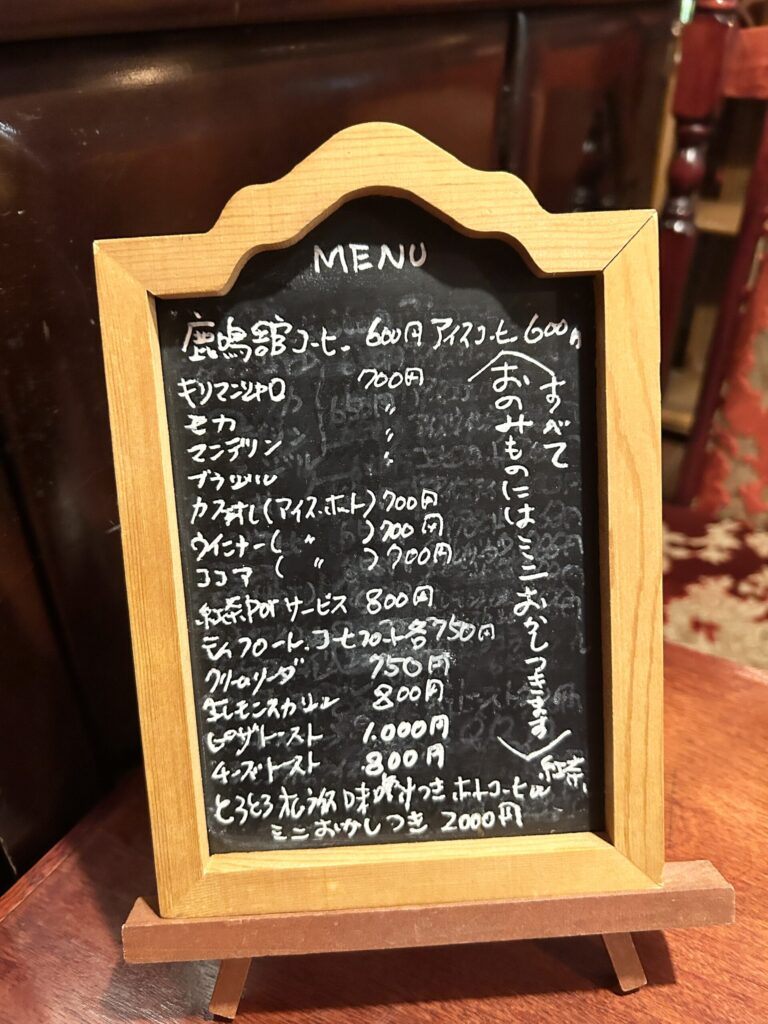 MENU
鹿鳴館コーヒー 600円 アイスコーヒー 600円
キリマンジャロ 700円
モカ 〃
マンデリン 〃
ブラジル 〃
カフェオレ(アイス.ホット) 700円
ウインナー( 〃 ) 700円
ココア ( 〃 ) 700円
紅茶potサービス 800円
フロート.コーヒーフロート各750円
クリームソーダ 750円
生レモンスカッシュ 800円
ピザトースト 1.000円
チーズトースト 800円
とろとろ つきホットコーヒー 紅茶
ミニおかしつき 2000円
すべて
おのみものにはミニおかしつきます